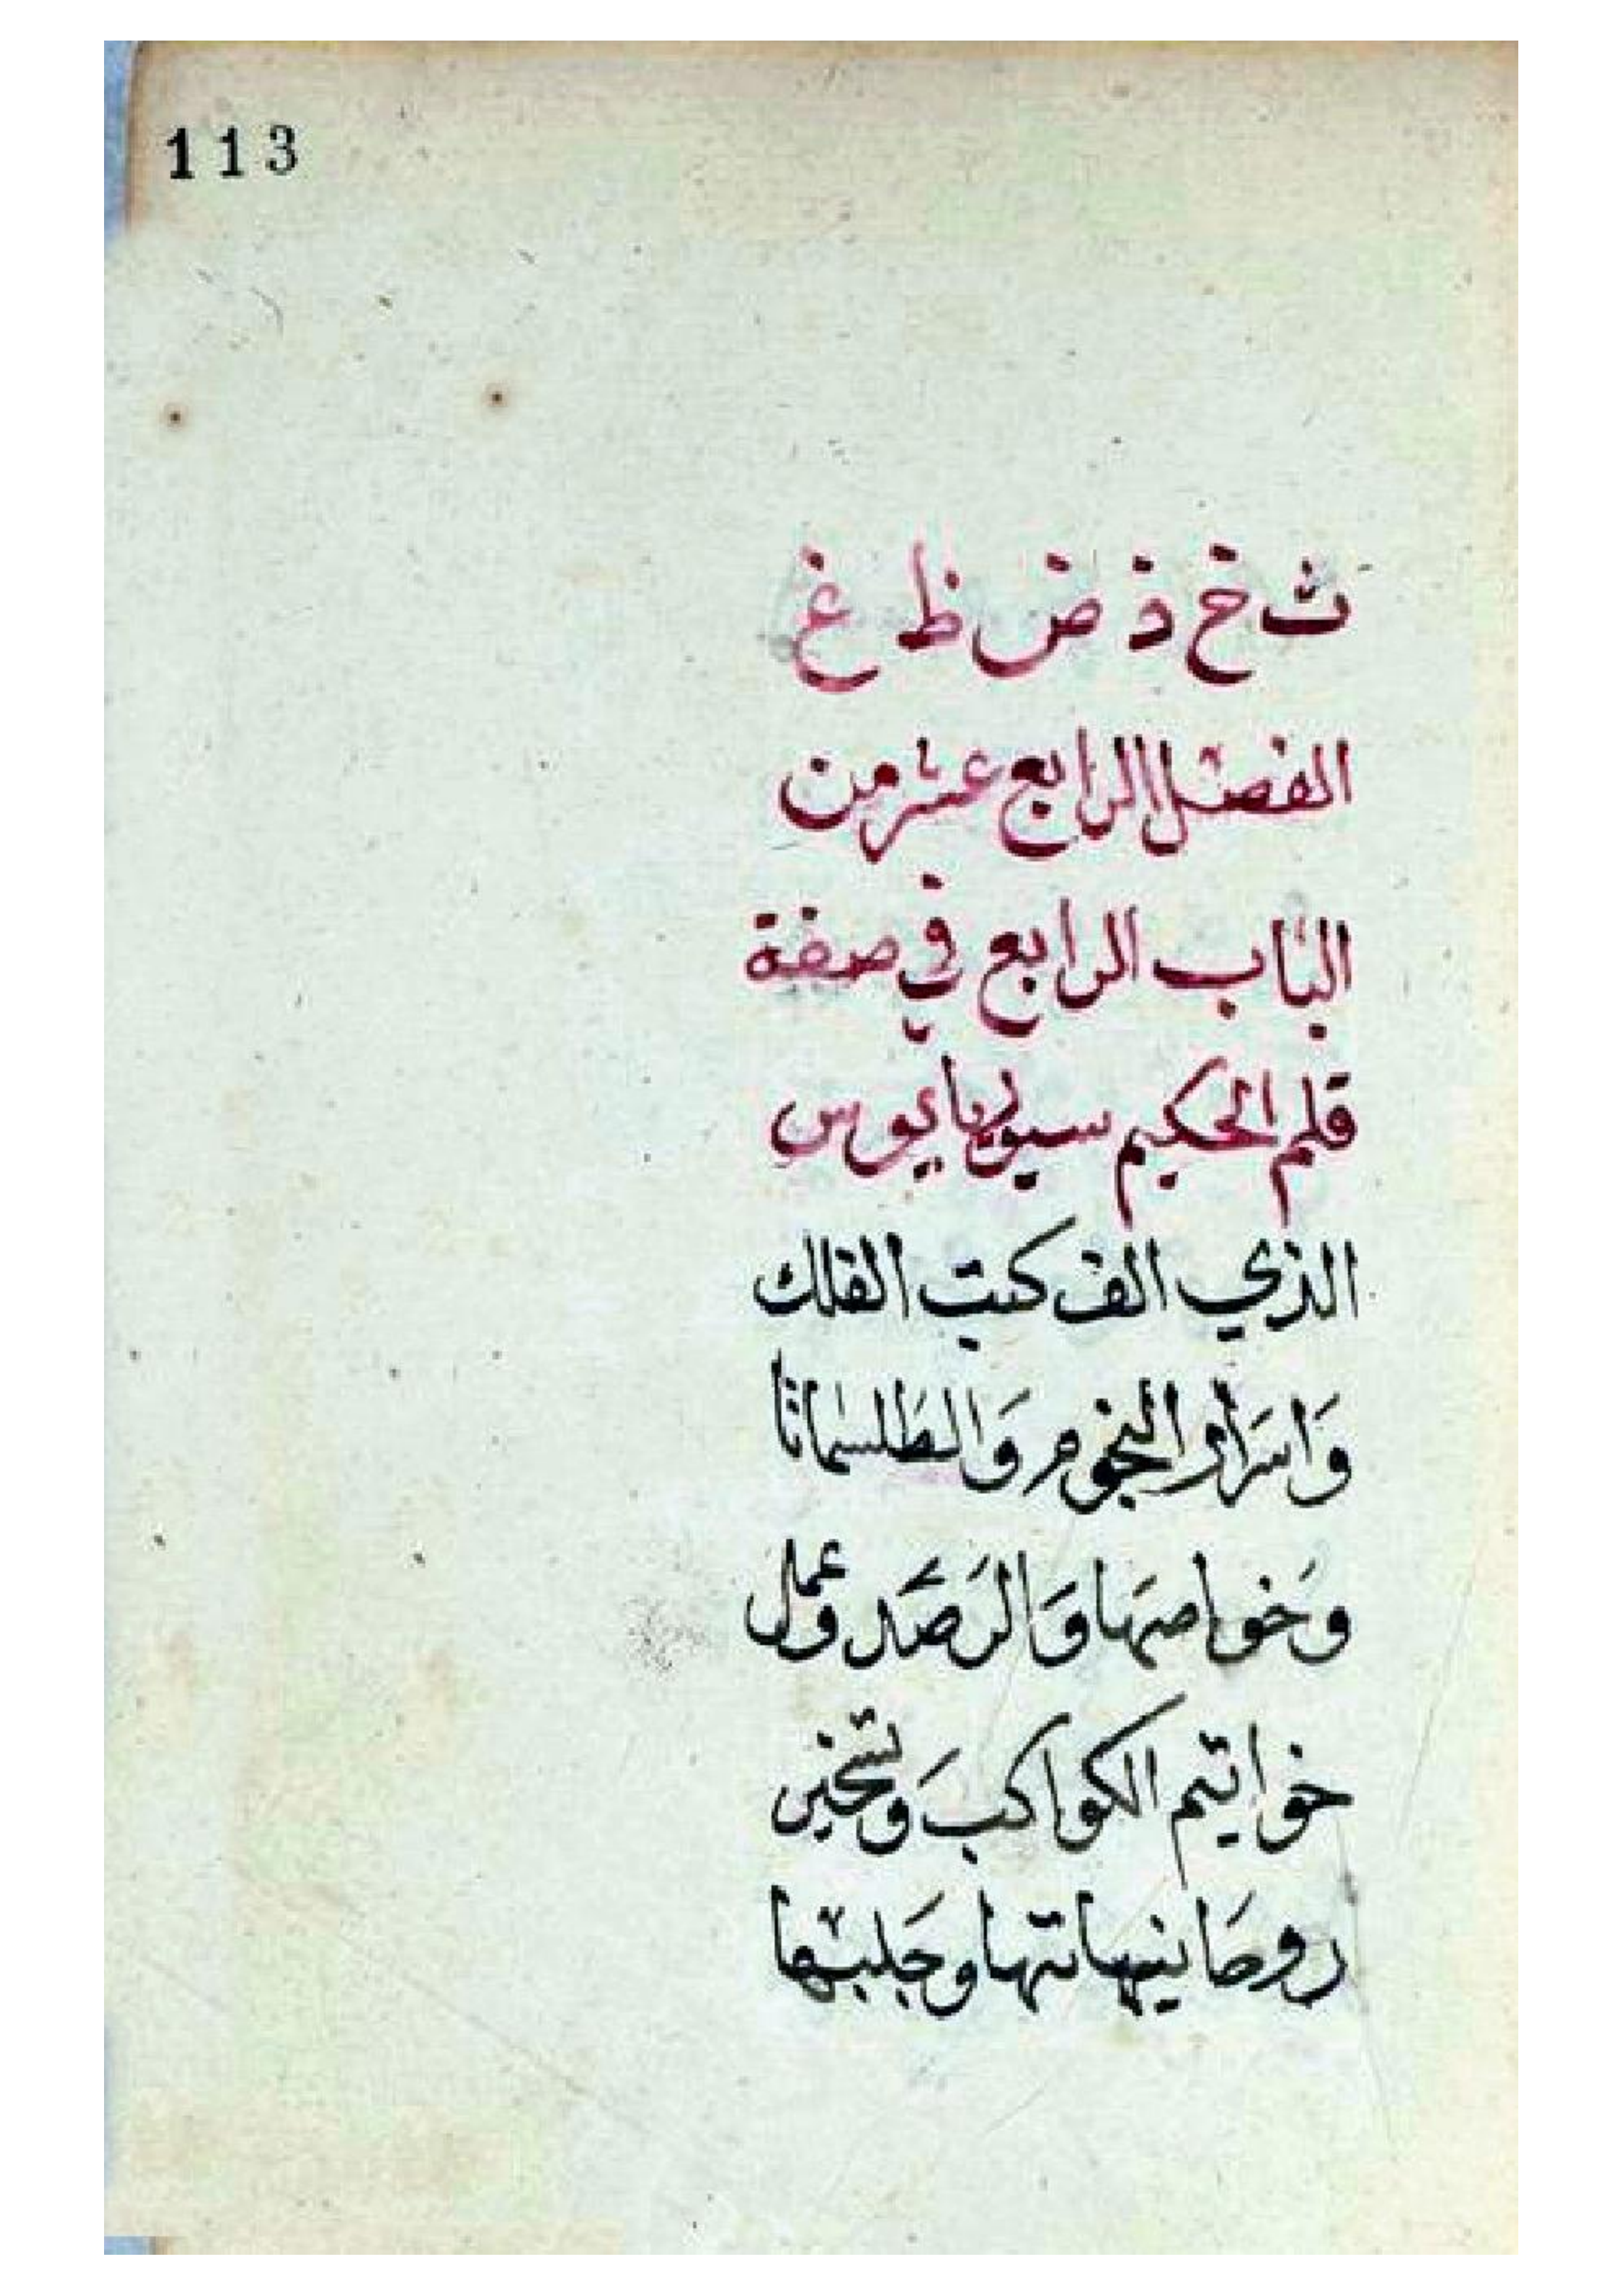 113
ث خ ذ ض ظ غ
الفصل الرابع عشر من
الباب الرابع في صفة
قلم الحكيم سيوريايوس
الذي الف كتب الفلك
وَاسرَار النجوم وَالطَلسمانا
وَخواصهَا وَالرَصَد وعمل
خواتيم الكواكبَ وتسخير
روحَانيهاتها وجَلبها